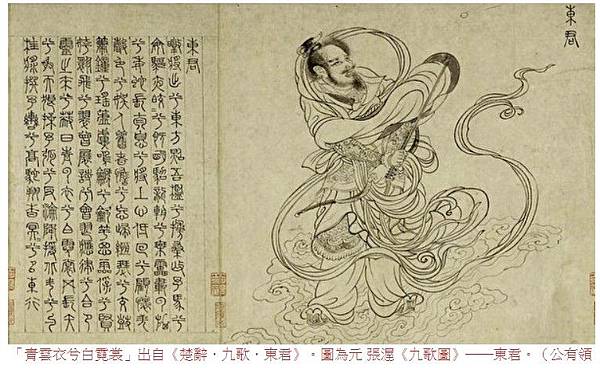 東君
東君
暾將出兮東方照吾檻兮扶桑撫余馬兮
安驅夜皎兮既明駕龍輈兮乘雷載雲旗
兮委蛇長太息兮將上心低佪兮顧懷羌
聲色兮娛人觀者憺兮忘歸緪瑟兮交鼓
簫鍾兮瑤簴鳴篪兮吹竽思靈保兮賢
姱翾飛兮翠曾展詩兮會舞應律兮合節
靈之來兮蔽日青雲衣兮白霓裳舉長矢
兮射天狼操余弧兮反淪降援北斗兮酌
桂漿撰余轡兮高駝翔杳冥兮以東行
「青雲衣兮白霓裳」出自《楚辭·九歌·東君》。圖為元 張渥《九歌圖》——東君。（公有領